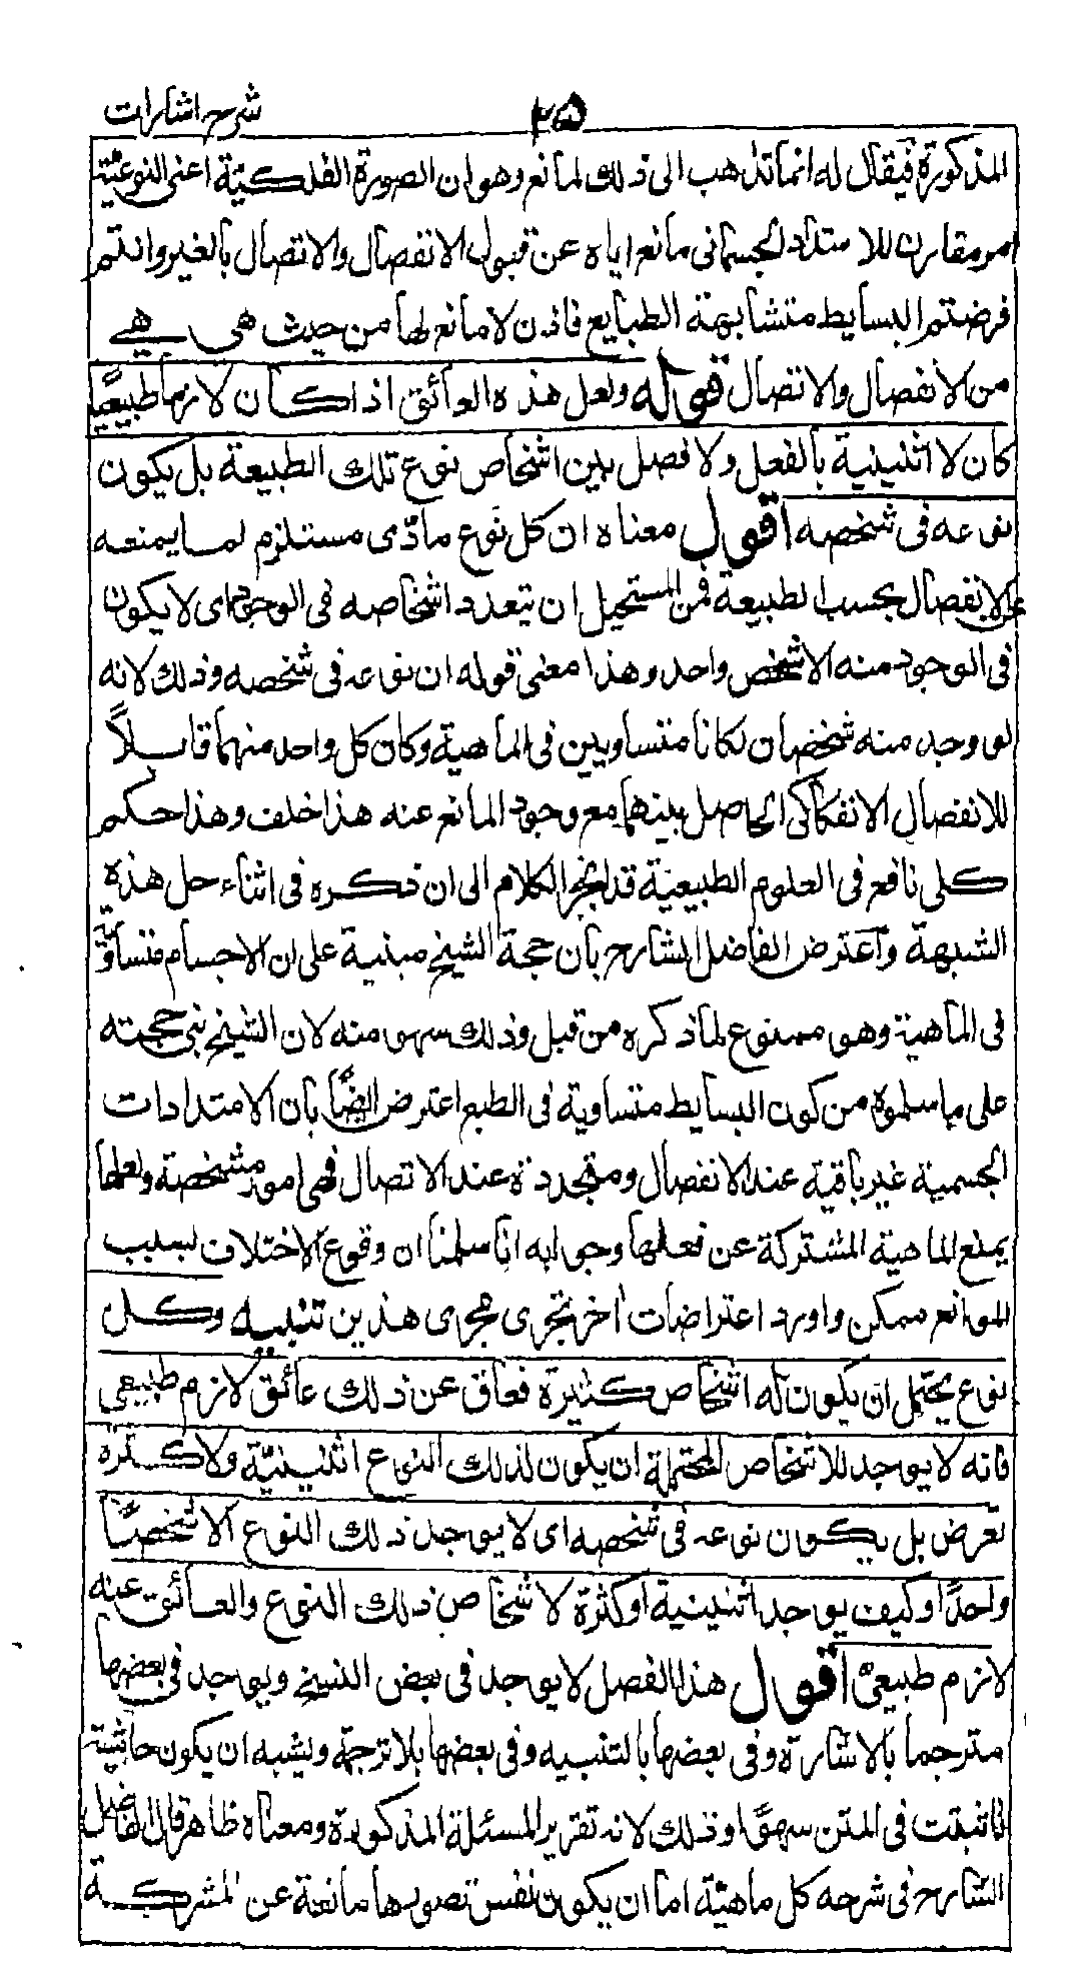 شرح اشارات
٢٥
المذكورة فيقال له انما تذهب الى ذلك لمانع وهو ان الصورة الفلكيّة اعنى النوعيّة
امر مقارن للامتداد الجسمانى مانع اياه عن قبول الانفصال والاتصال بالغير وانتم
فرضتم البسايط متشابهة الطبايع فاذن لا مانع لها من حيث هى هى
من الانفصال والاتصال قوله ولعل هذه العائق اذا كان لازما طبيعيًا
كان لا اثنينية بالفعل ولا فصل بين اشخاص نوع تلك الطبيعة بل يكون
نوعه فى شخصه اقول معناه ان كل نوع مادّى مستلزم لما يمنعه
عن الانفصال بحسب الطبيعة فمن المستحيل ان يتعدد اشخاصه فى الوجود اى لا يكون
فى الوجود منه الا شخص واحد وهذا معنى قوله ان نوعه فى شخصه وذلك لانه
لو وجد منه شخصان لكانا متساويين فى الماهية وكان كل واحد منهما قابلاً
للانفصال الانفكاكى الحاصل بينهما مع وجود المانع عنه هذا خلف وهذا حكم
كلى نافع فى العلوم الطبيعيّة قد انجر الكلام الى ان ذكره فى اثناء حل هذه
الشبهة واعترض الفاضل الشارح بان حجة الشيخ مبنية على ان الاجسام متساوية
فى الماهية وهو ممنوع لما ذكره من قبل وذلك سهو منه لان الشيخ بنى حجته
على ما سلموه من كون البسايط متساوية فى الطبع اعترض ايضًا بان الامتدادات
الجسمية غير باقية عند الانفصال ومتجددة عند الاتصال فهى امور مشخصة ولعلها
يمنع الماهية المشتركة عن فعلها وجوابه انا سلمنا ان وقوع الاختلاف بسبب
الموانع ممكن واورد اعتراضات اخر تجرى مجرى هذين تنبيه وكل
نوع يحتمل ان يكون له اشخاص كثيرة فعاق عن ذلك عائق لازم طبيعى
فانه لا يوجد للاشخاص المحتملة ان يكون لذلك النوع اثنينيّة ولا كثرة
تعرض بل يكون نوعه فى شخصه اى لا يوجد ذلك النوع الا شخصًا
واحدًا وكيف يوجد اثنينية او كثرة لاشخاص ذلك النوع والعائق عنه
لازم طبيعىّ اقول هذا الفصل لا يوجد فى بعض النسخ ويوجد فى بعضها
مترجما بالاشارة وفى بعضها بالتنبيه وفى بعضها بلا ترجمة ويشبه ان يكون حاشية
فاثبتت فى المتن سهوًا وذلك لانه تقرير المسئلة المذكورة ومعناه ظاهر قال الفاضل
الشارح فى شرحه كل ماهيّة اما ان يكون نفس تصورها مانعة عن الشركة